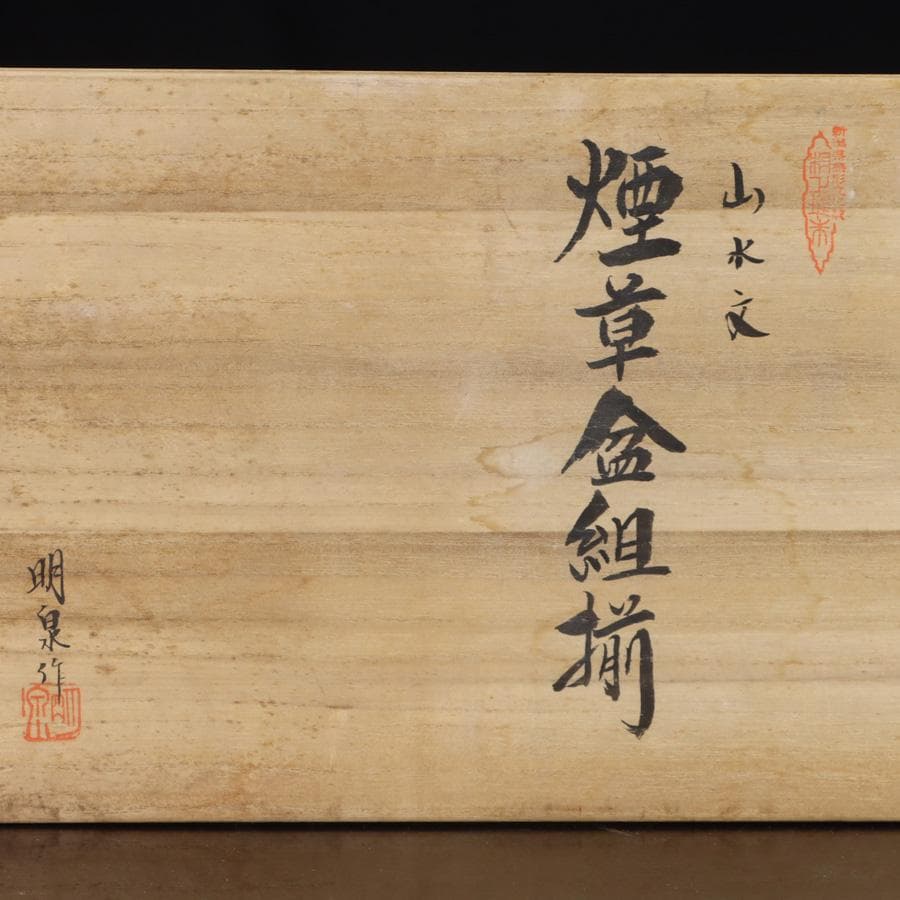 山水文
煙草盆組揃
明泉作
明泉